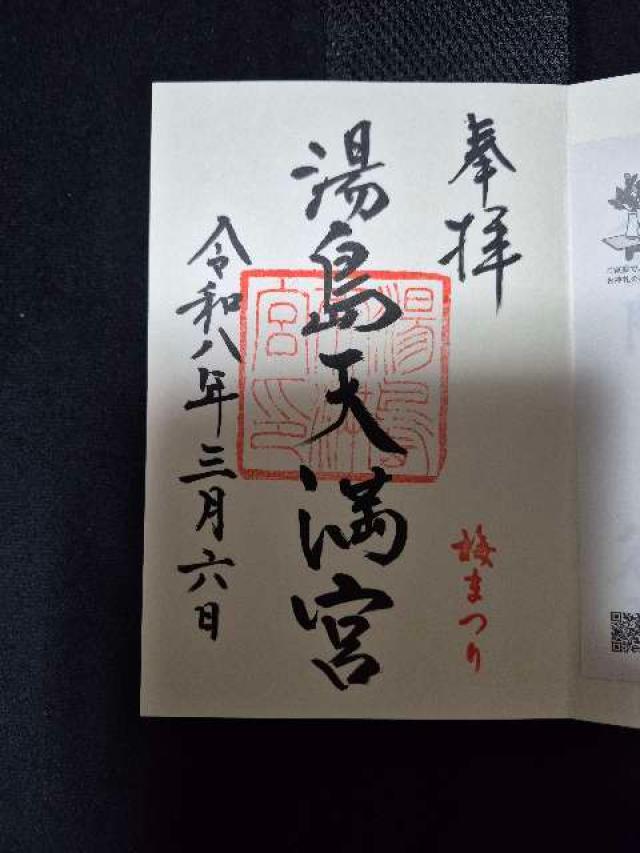 奉拝
湯島天満宮
湯島天満宮印
梅まつり
令和八年三月六日